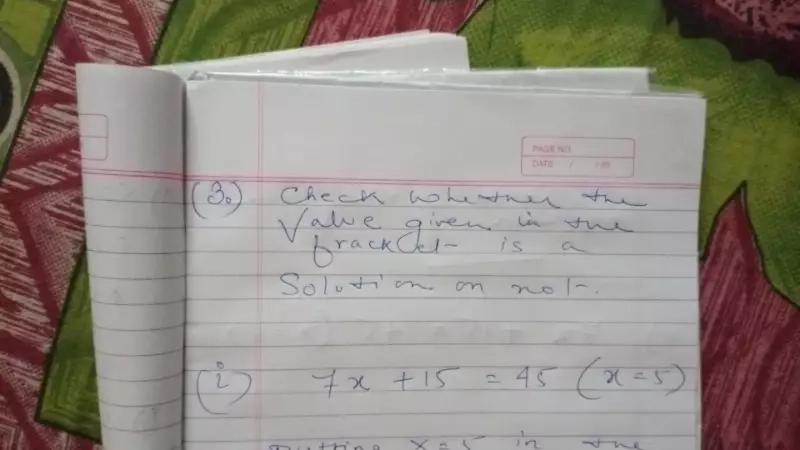 PAGE NO
DATE / /
(3.) Check whether the
Value given in the
brackdet is a
Solution or not.
(i) 7x + 15 = 45 (x = 5)
putting x = 5 in the